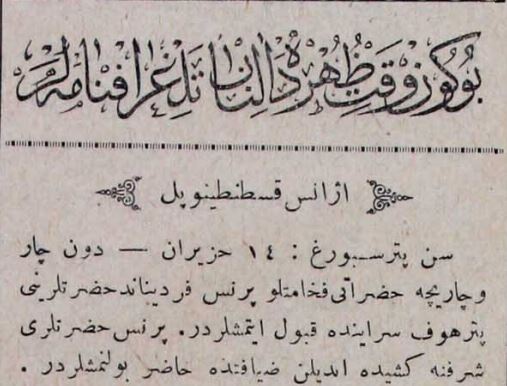 بوكون وقت ظهرده آلنان تلغرافنامه لر
اژانس قسطنطينوپل
سن پترسبورغ : ١٤ حزيران — دون چار
وچاريچه حضراتى فخامتلو پرنس فردیناند حضرتلرينى
پترهوف سراينده قبول ايتمشلردر. پرنس حضرتلرى
شرفنه كشيده اديلن ضيافتده حاضر بولنمشلردر .